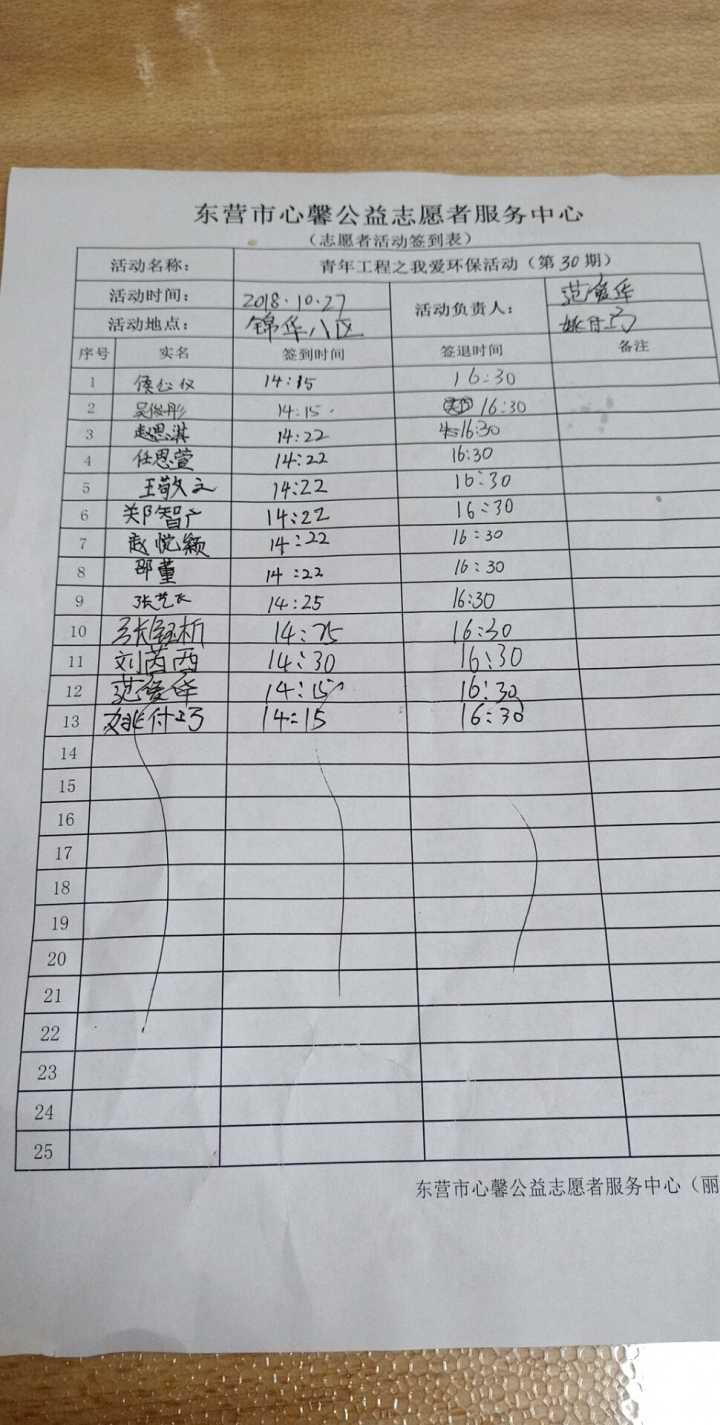 东营市心馨公益志愿者服务中心
（志愿者活动签到表）
活动名称： 青年工程之我爱环保活动（第30期）
活动时间： 2018.10.27 活动负责人： 范爱华
活动地点： 锦华八区 姚付巧
序号 实名 签到时间 签退时间 备注
1 14:15 16:30
2 吴俊彤 14:15 16:30
3 赵思淇 14:22 16:30
4 任思萱 14:22 16:30
5 王敬文 14:22 16:30
6 郑智广 14:22 16:30
7 赵悦颖 14:22 16:30
8 邵董 14:22 16:30
9 张艺 14:25 16:30
10 张钰析 14:25 16:30
11 刘芮西 14:30 16:30
12 范爱华 14:15 16:30
13 姚付巧 14:15 16:30
14
15
16
17
18
19
20
21
22
23
24
25
东营市心馨公益志愿者服务中心（丽